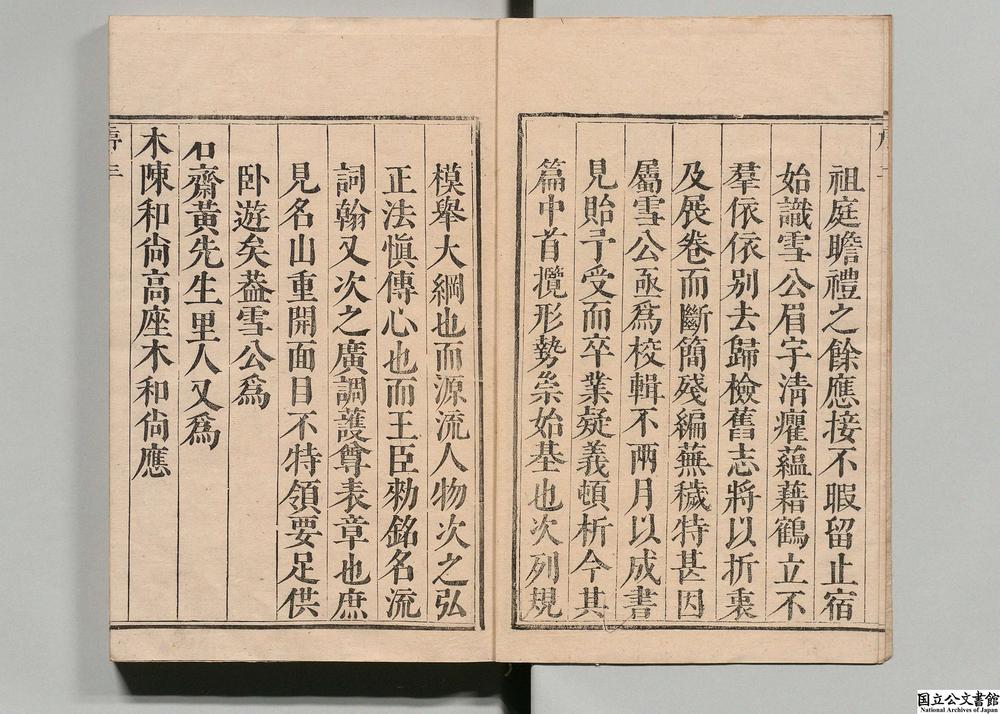 祖庭瞻禮之餘應接不暇留止宿
始識雪公眉宇清癯蘊藉鶴立不
羣依依別去歸檢舊志將以折衷
及展卷而斷簡殘編蕪穢特甚因
屬雪公亟爲校輯不兩月以成書
見貽予受而卒業疑義頓析今其
篇中首攬形勢崇始基也次列規
模舉大綱也而源流人物次之弘
正法愼傳心也而王臣勑銘名流
詞翰又次之廣調護尊表章也庶
見名山重開面目不特領要足供
卧遊矣葢雪公爲
石齋黃先生里人又爲
木陳和尚高座木和尚應
国立公文書館
National Archives of Japan